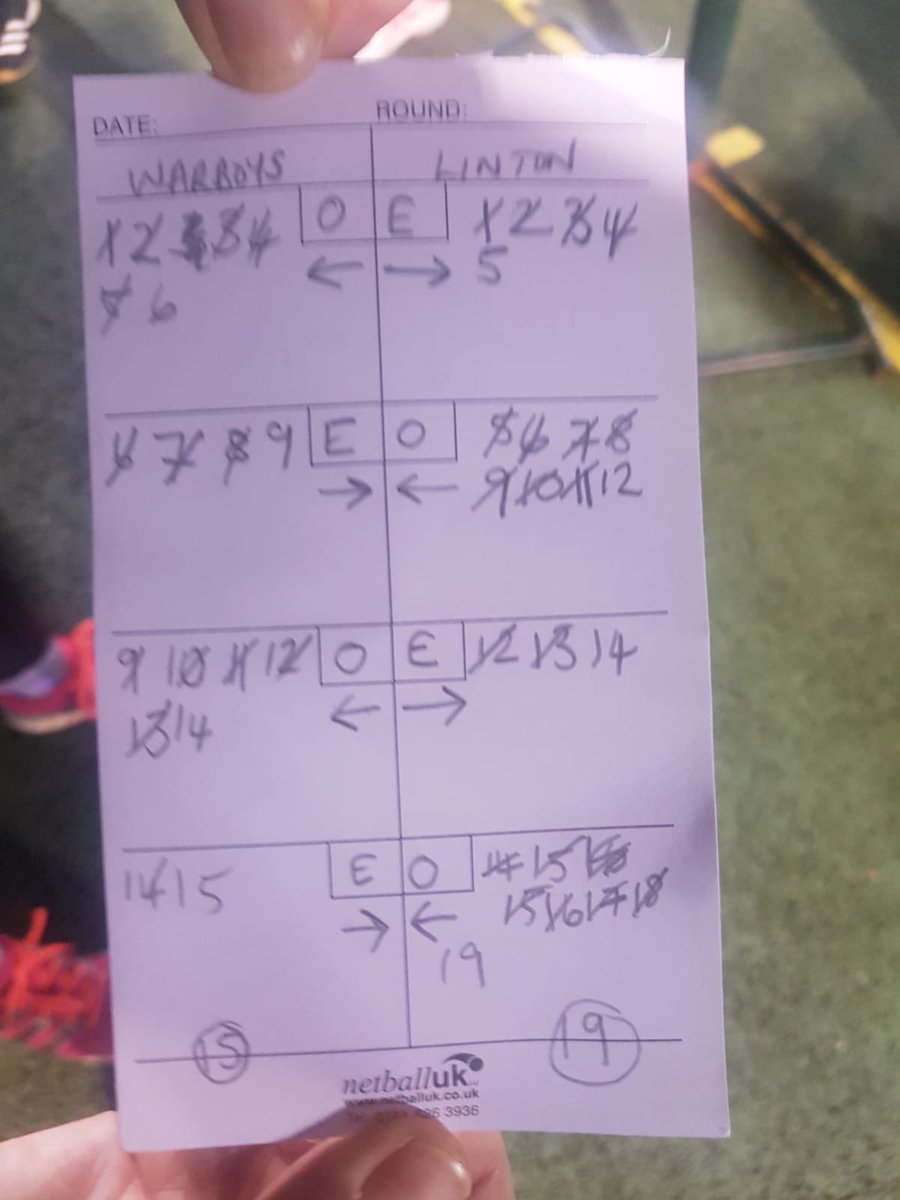 DATE: ROUND:
WARBOYS LINTON
1 2 3 4 O E 1 2 3 4
5 6 ← → 5
6 7 8 9 E O 5 6 7 8
→ ← 9 10 11 12
9 10 11 12 O E 12 13 14
13 14 ← →
14 15 E O 14 15
→ ← 15 16 17 18
19
15 19
netballuk
www.netballuk.co.uk
3936